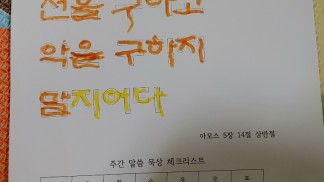 선을 구하고
악을 구하지
말지어다
아모스 5장 14절 상반절
주간 말씀 묵상 체크리스트
월 화 수 목 금 토